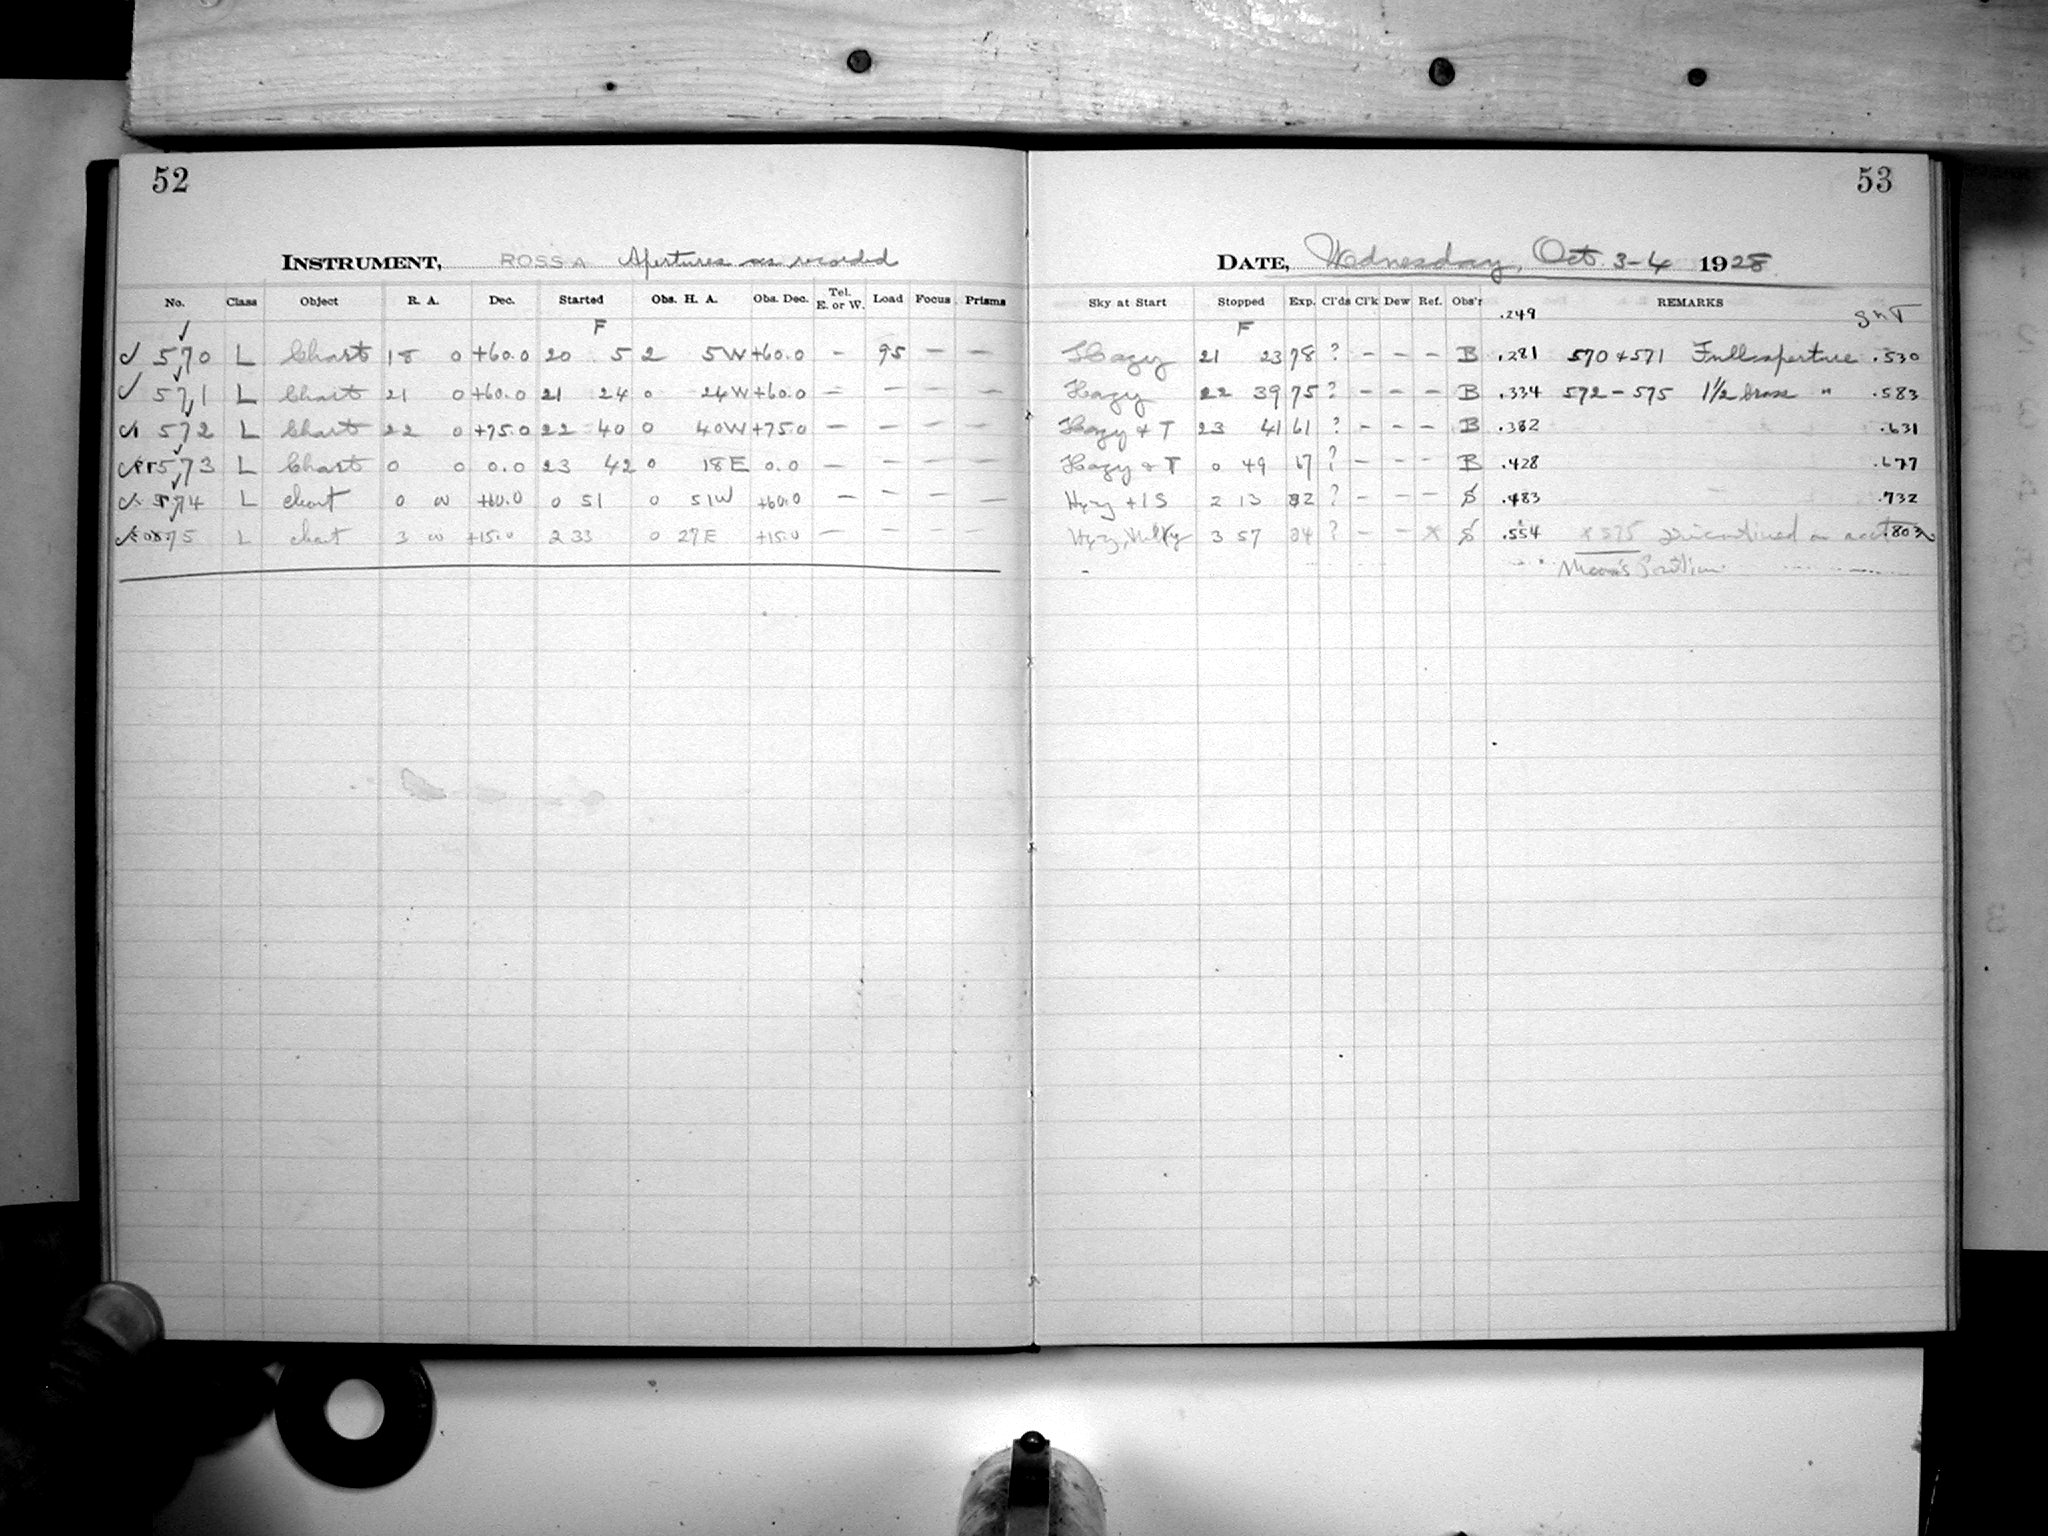 52
INSTRUMENT, ROSS A Apertures as recorded
No. Class Object R. A. Dec. Started Obs. H. A. Obs. Dec. Tel. E. or W. Load Focus Prisms
F
570 L Chart 18 0 +60.0 20 5 2 5W +60.0 - 95 - -
571 L Chart 21 0 +60.0 21 24 0 24W +60.0 - - - -
572 L Chart 22 0 +75.0 22 40 0 40W +75.0 - - - -
573 L Chart 0 0 0.0 23 42 0 18E 0.0 - - - -
574 L chart 0 00 +60.0 0 51 0 51W +60.0 - - - -
575 L chart 3 00 +15.0 2 33 0 27E +15.0 - - - -
53
DATE, Wednesday, Oct 3-4 1928
Sky at Start Stopped Exp. Cl'ds Cl'k Dew Ref. Obs'r REMARKS
.249 GMT
F
Hazy 21 23 78 ? - - - B .281 570 & 571 Full aperture .530
Hazy 22 39 75 ? - - - B .334 572 - 575 1½ brase " .583
Hazy & T 23 41 61 ? - - - B .382 .631
Hazy & T 0 49 67 ? - - - B .428 .677
Hazy + 1 S 2 13 82 ? - - - S .483 .732
Hazy, Milky 3 57 84 ? - - * S .554 * 575 discontinued on acct .803
Moon's Position